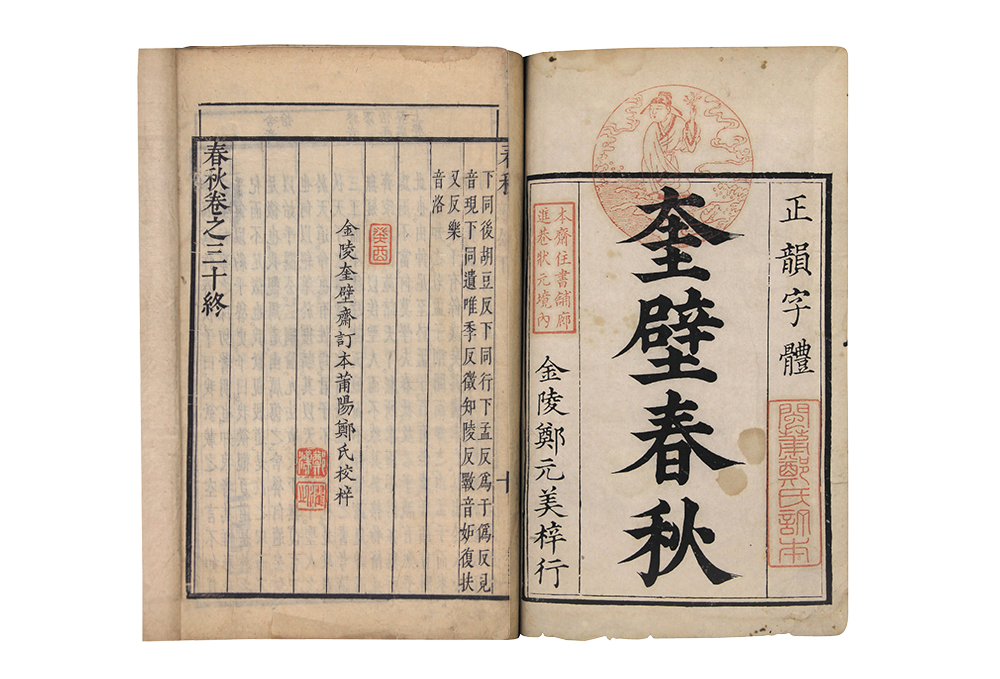 正韻字體
閩莆鄭氏訂本
奎壁春秋
本齋住書舖廊
進巷狀元境內
金陵鄭元美梓行
下同後胡豆反下同行下孟反爲于僞反見
音現下同遺唯季反徵知陵反斁音妬復扶
又反樂
音洛
癸酉
金陵奎壁齋訂本莆陽鄭氏校梓
春秋卷之三十終